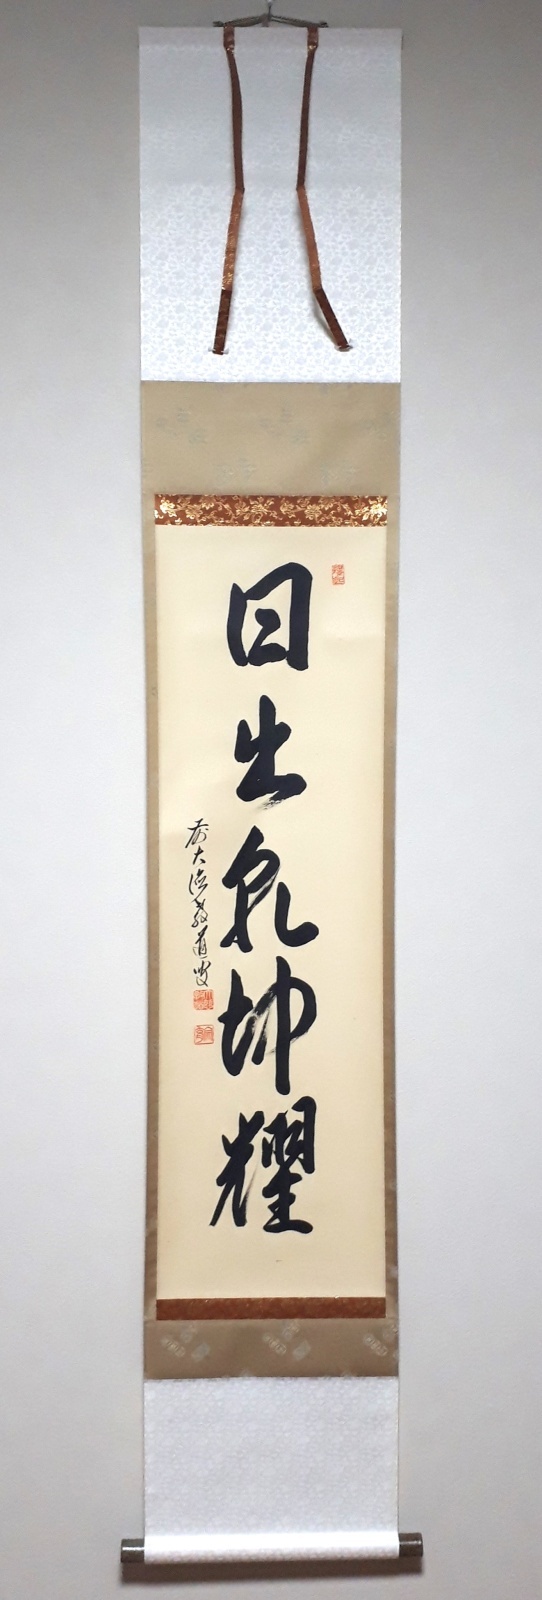 日出乾坤耀
前大徳教道叟